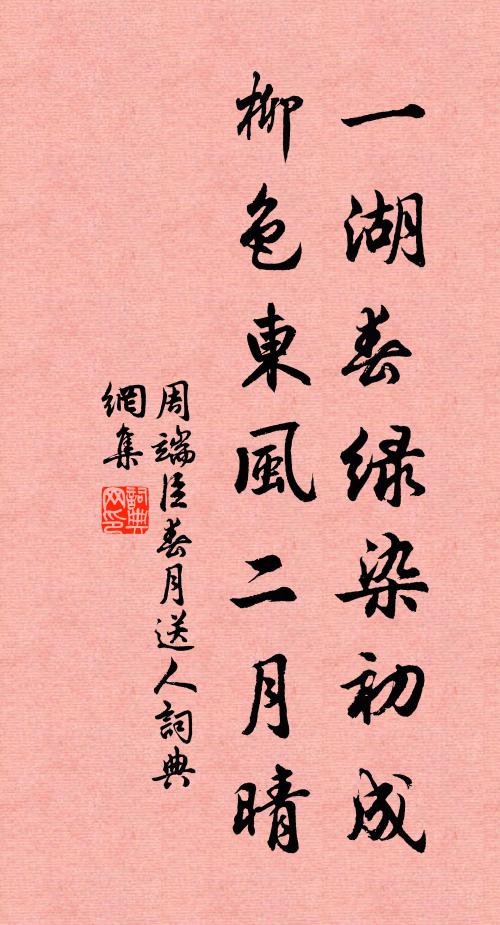 一湖春綠染初成
柳色東風二月晴
周端臣春月送人詞典
網集
詞典
网印